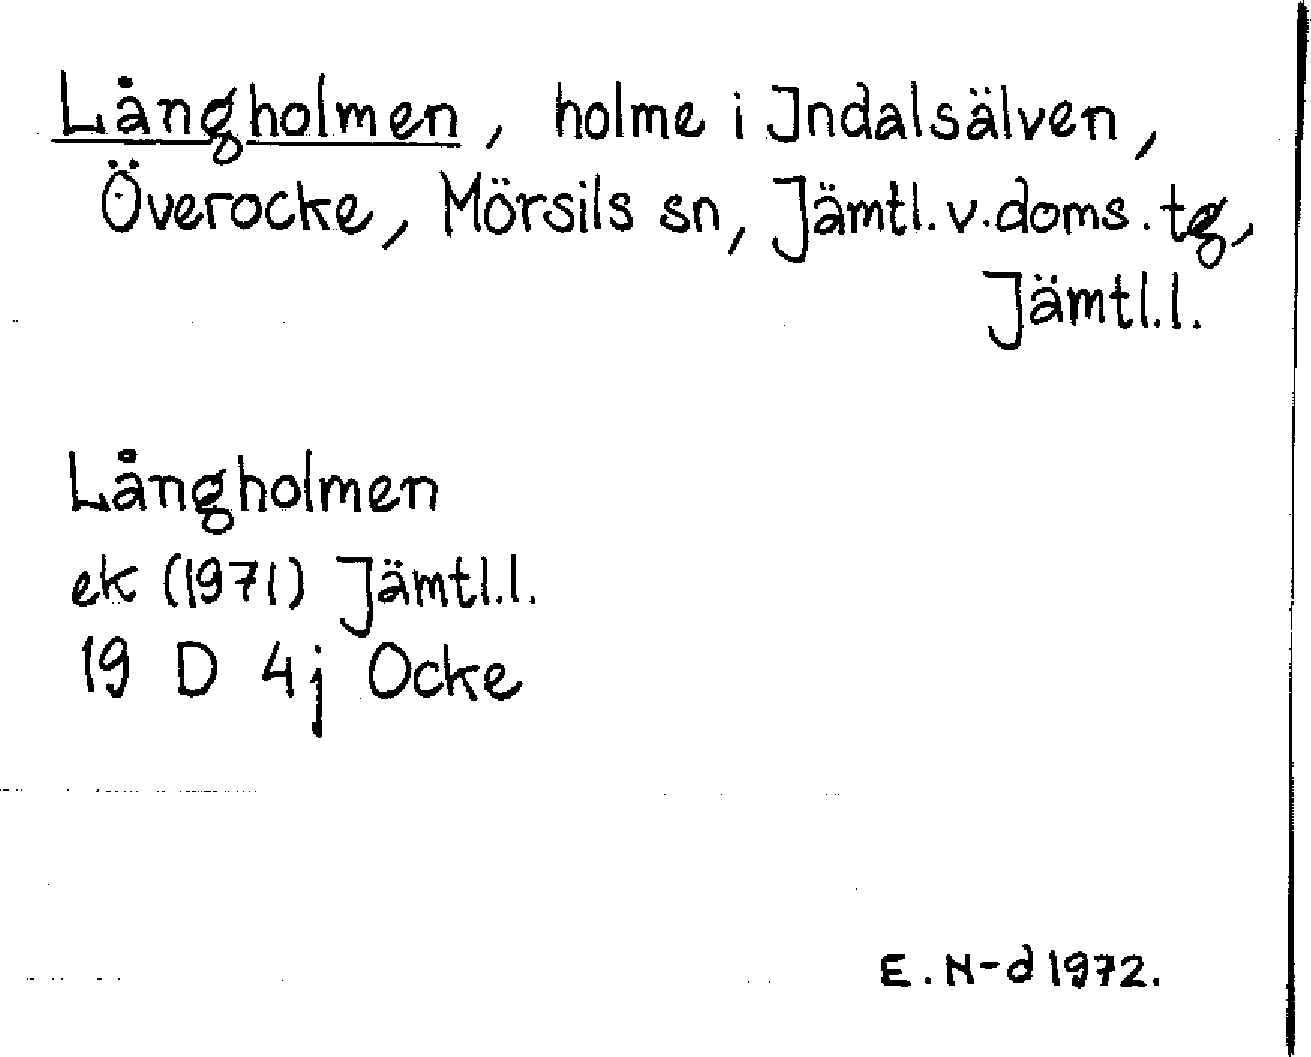 Långholmen, holme i Indalsälven,
Överocke, Mörsils sn, Jämtl.v.doms.tg,
Jämtl.l.
Långholmen
ek (1971) Jämtl.l.
19 D 4j Ocke
E.N-d 1972.